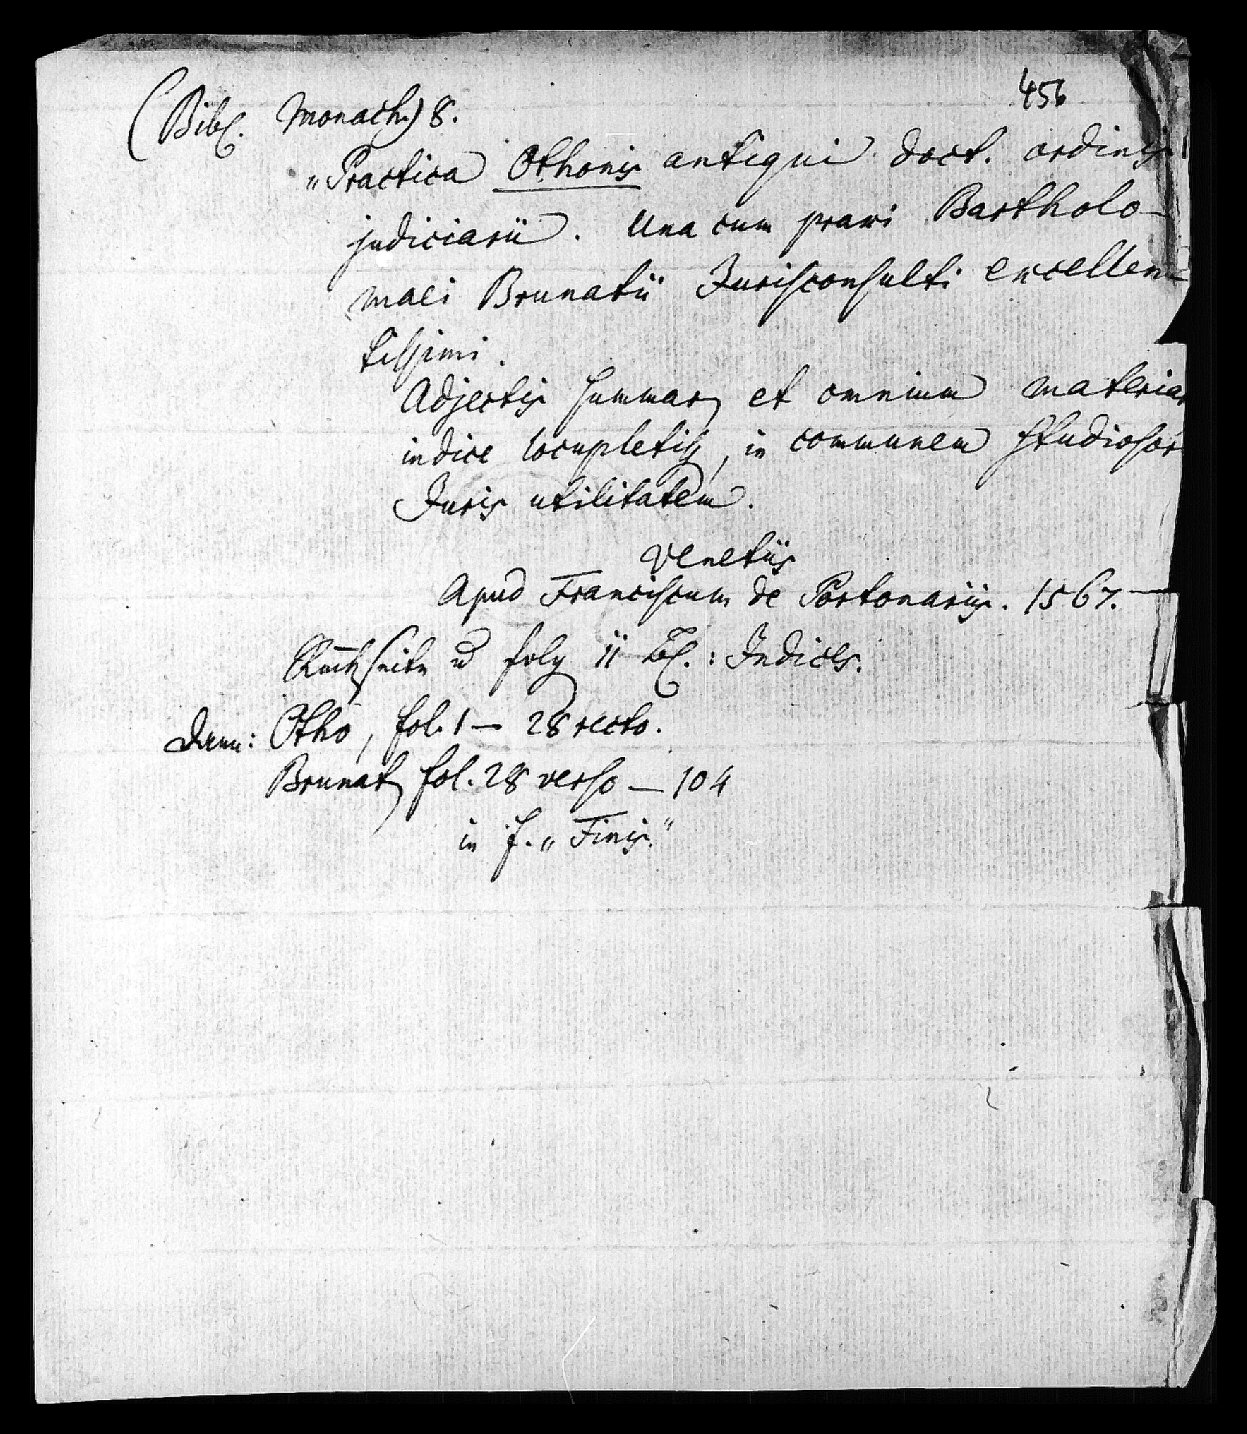 456
(Bibl. Monach.) 8.
„Practica Othonis antiqui doct. ordinis
judiciarii. Una cum praxi Bartholo-
maei Brunatii Jurisconsulti excellen-
tissimi.
Adjectis summar. et omnium materiar
indice locupletiss, in communem studiosor
Juris utilitatem.
Venetiis
Apud Franciscum de Portonariis. 1567. —
Rückseite u folg 11 Bl.: Indices.
Dann: Otho, fol. 1 — 28 recto.
Brunat. fol. 28 verso — 104
in f. „Finis."